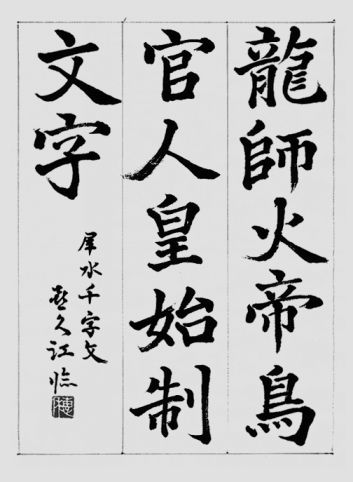 龍師火帝鳥
官人皇始制
文字
犀水千字文
久江臨